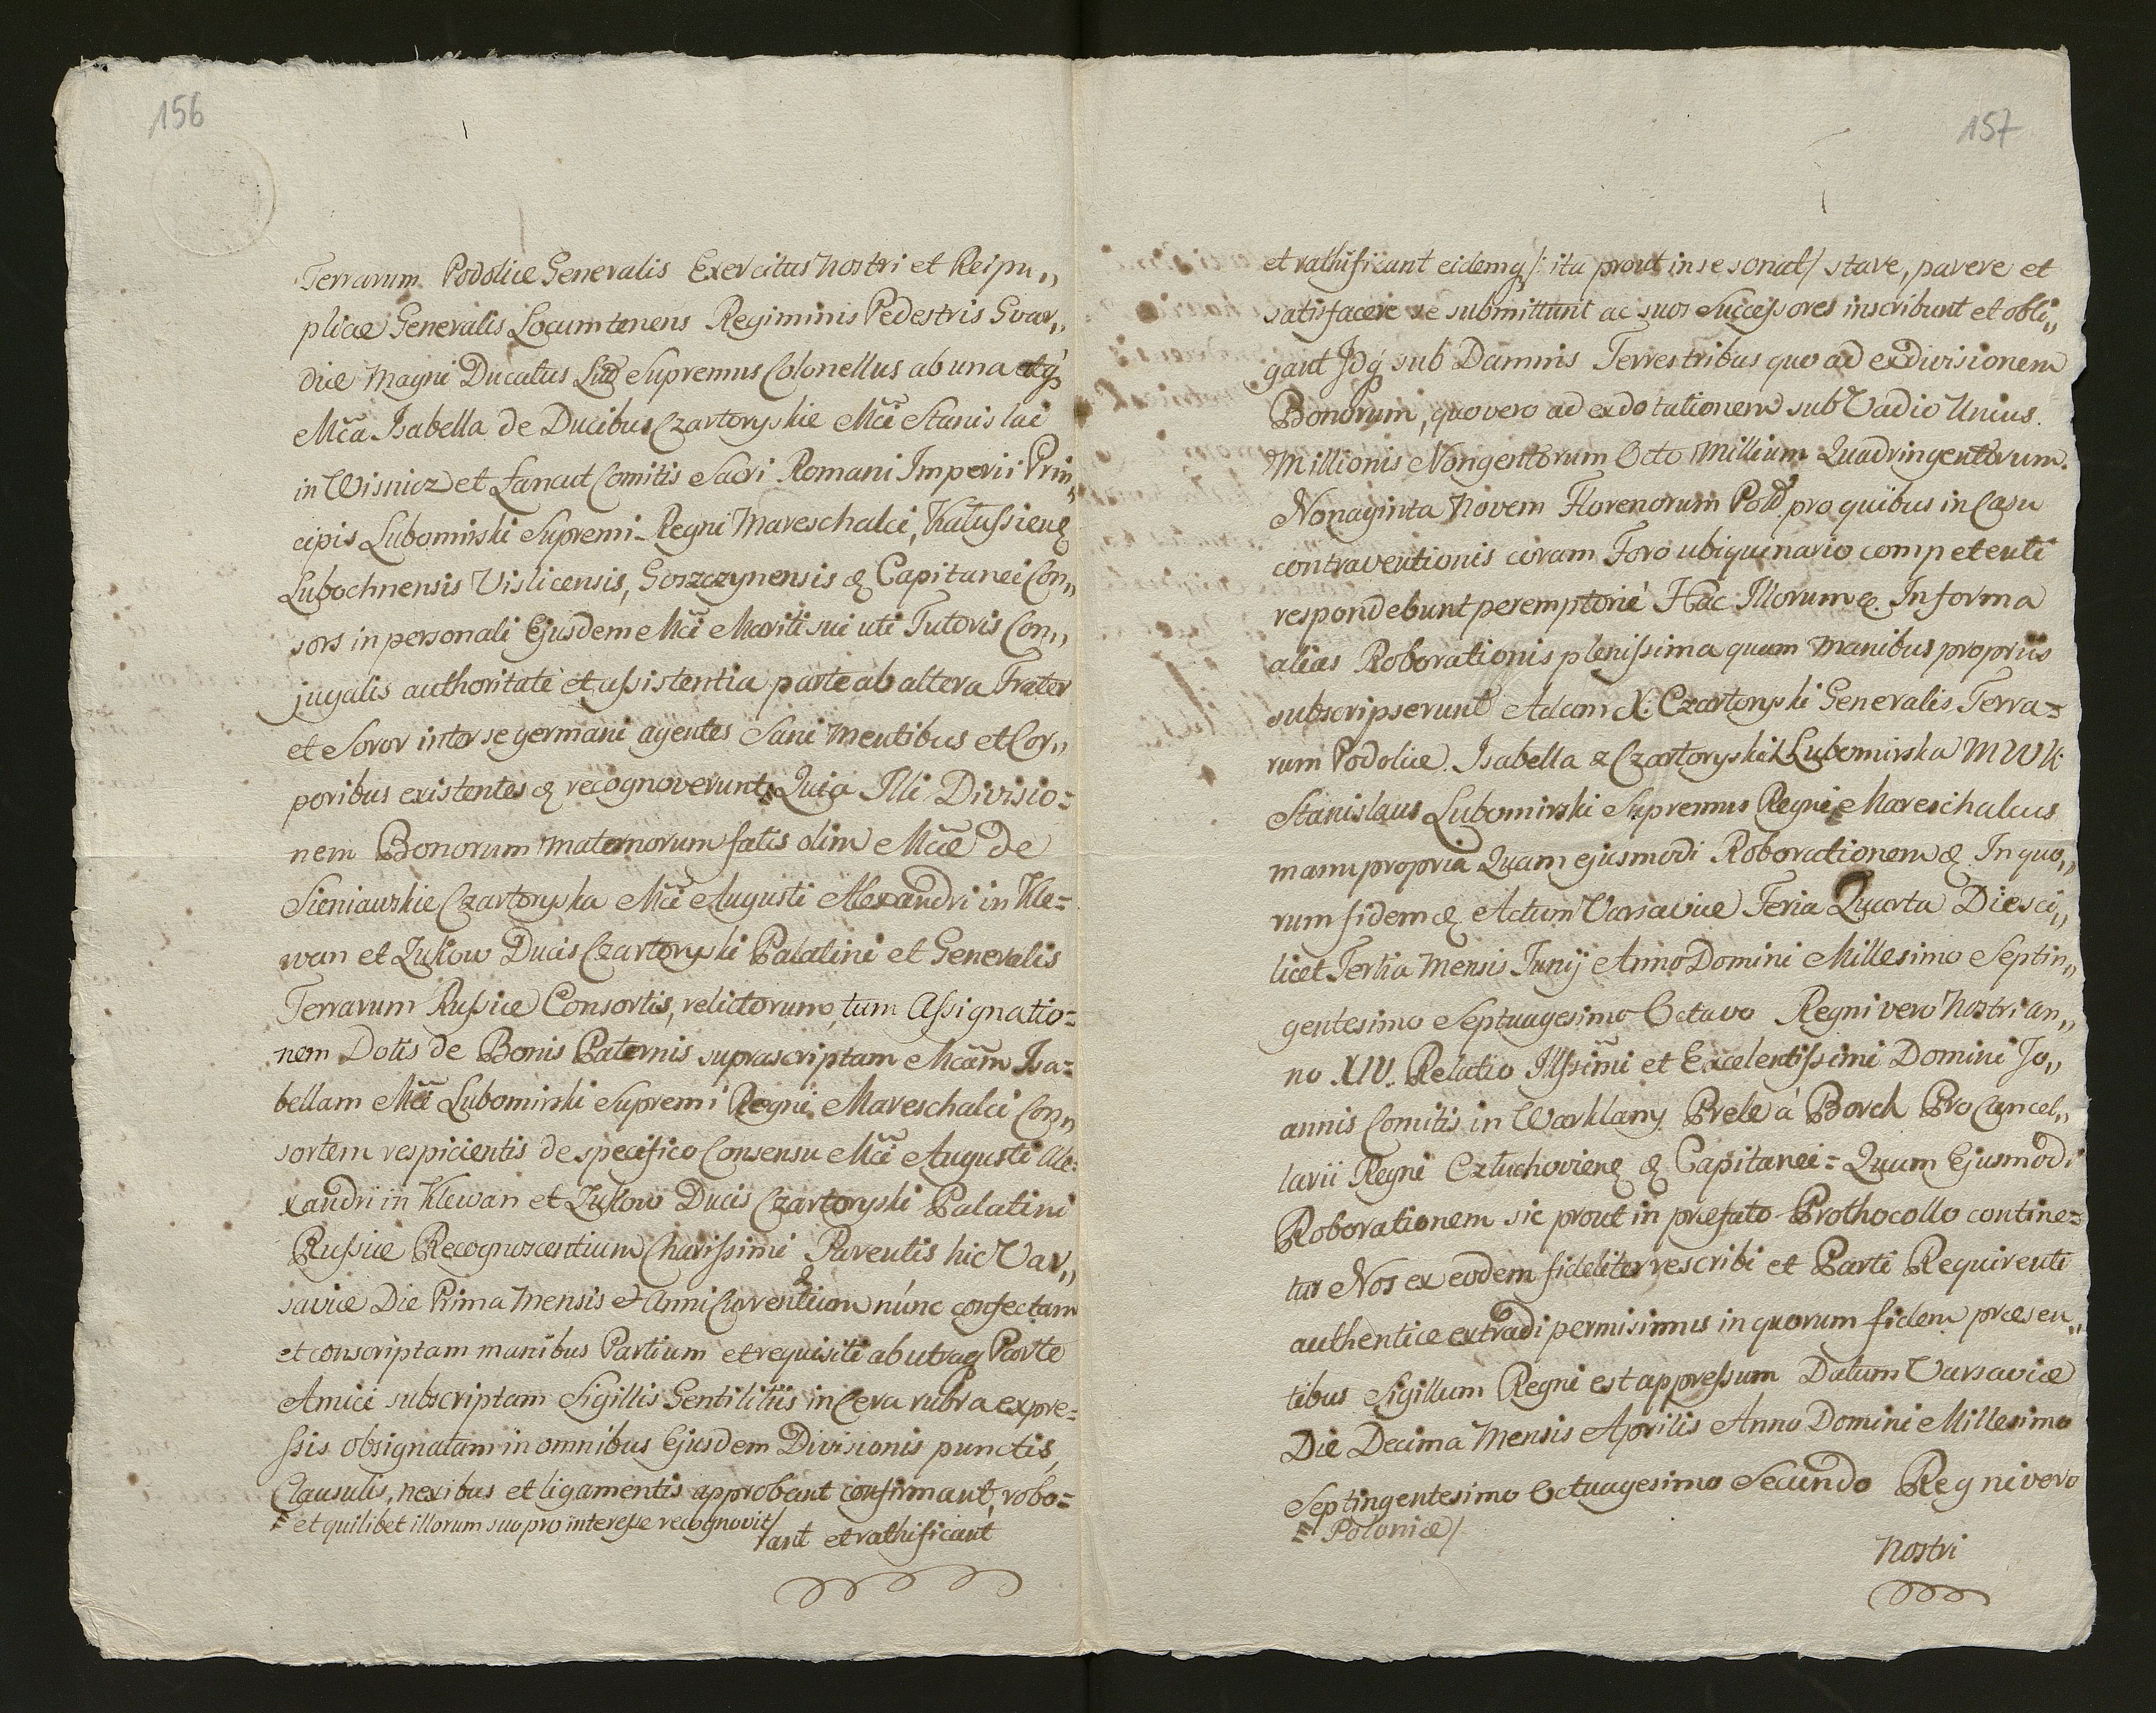 156
Terrarum Podoliæ Generalis Exercitus Nostri et Reipu„
plicæ Generalis Locumtenens Regiminis Pedestris Gvar„
diæ Magni Ducatus Litt Supremus Colonellus ab una atq
Mca Isabella de Ducibus Czartoryskie Mci Stanislai
in Wisnicz et Lancut Comitis Sacri Romani Imperii Prin„
cipis Lubomirski Supremi Regni Mareschalci, Kalussien
Lubochnensis Vislicensis, Goszczynensis & Capitanei Con„
sors in personali Ejusdem Mci Mariti sui uti Tutoris Con„
jugalis authoritate et assistentia parte ab altera Frater
et Soror inter se germani agentes Sani Mentibus et Cor„
poribus existentes & recognoverunt = Quia Illi Divisio=
nem Bonorum Maternorum fatis olim Mcæ de
Sieniawskie Czartoryska Mci Augusti Alexandri in Kle=
wan et Zukow Ducis Czartoryski Palatini et Generalis
Terrarum Russiæ Consortis, relictorum, tum Assignatio=
nem Dotis de Bonis Paternis suprascriptam Mcam Isa=
bellam Mci Lubomirski Supremi Regni Mareschalci Con„
sortem respicientis de specifico Consensu Mci Augusti Ale=
xandri in Klewan et Zukow Ducis Czartoryski Palatini
Russiæ Recognoscentium Charissimi Parentis hic Var„
saviæ Die Prima Mensis et Anni Currentium nunc confectam
et conscriptam manibus Partium et requisiti ab utraq Parte
Amici subscriptam Sigillis Gentilitiis in Cera rubra expre=
ssis obsignatam in omnibus Ejusdem Divisionis punctis,
Clausulis, nexibus et ligamentis approbant confirmant, robo=
= et quilibet illorum suo pro interesse recognovit/
rant et rathificant
157
et rathificant eidemq /: ita prout in se sonat/ stare, parere et
satisfacere se submittunt ac suos Successores inscribunt et obli„
gant Idq sub Damnis Terrestribus quo ad exdivisionem
Bonorum, quo vero ad exdotationem sub Vadio Unius
Millionis Nongentorum Octo Millium Quadringentorum
Nonaginta Novem Florenorum Pol pro quibus in Casu
contraventionis coram Foro ubiquinario competenti
respondebunt peremptorie Hac Illorum & In forma
alias Roborationis plenissima quam Manibus propriis
subscripserunt Adam X. Czartoryski Generalis Terra=
rum Podoliæ. Isabella z Czartoryskich Lubomirska M W K
Stanislaus Lubomirski Supremus Regni Mareschalcus
manu propria Quam ejusmodi Roborationem & In quo„
rum fidem & Actum Varsaviæ Feria Quarta Die sci„
licet Tertia Mensis Junij Anno Domini Millesimo Septin„
gentesimo Septuagesimo Octavo Regni vero Nostri an„
no XIV. Relatio Illssimi et Excelentissimi Domini Jo„
annis Comitis in Warklany Prele à Borch Pro Cancel„
larii Regni Czluchovien & Capitanei = Quam Ejusmodi
Roborationem sic prout in præfato Prothocollo contine=
tur Nos ex eodem fideliter rescribi et Parti Requirenti
authentice extradi permisimus in quorum fidem præsen„
tibus Sigillum Regni est appressum Datum Varsaviæ
Die Decima Mensis Aprilis Anno Domini Millesimo
Septingentesimo Octuagesimo Secundo Regni vero
= Poloniæ/
Nostri